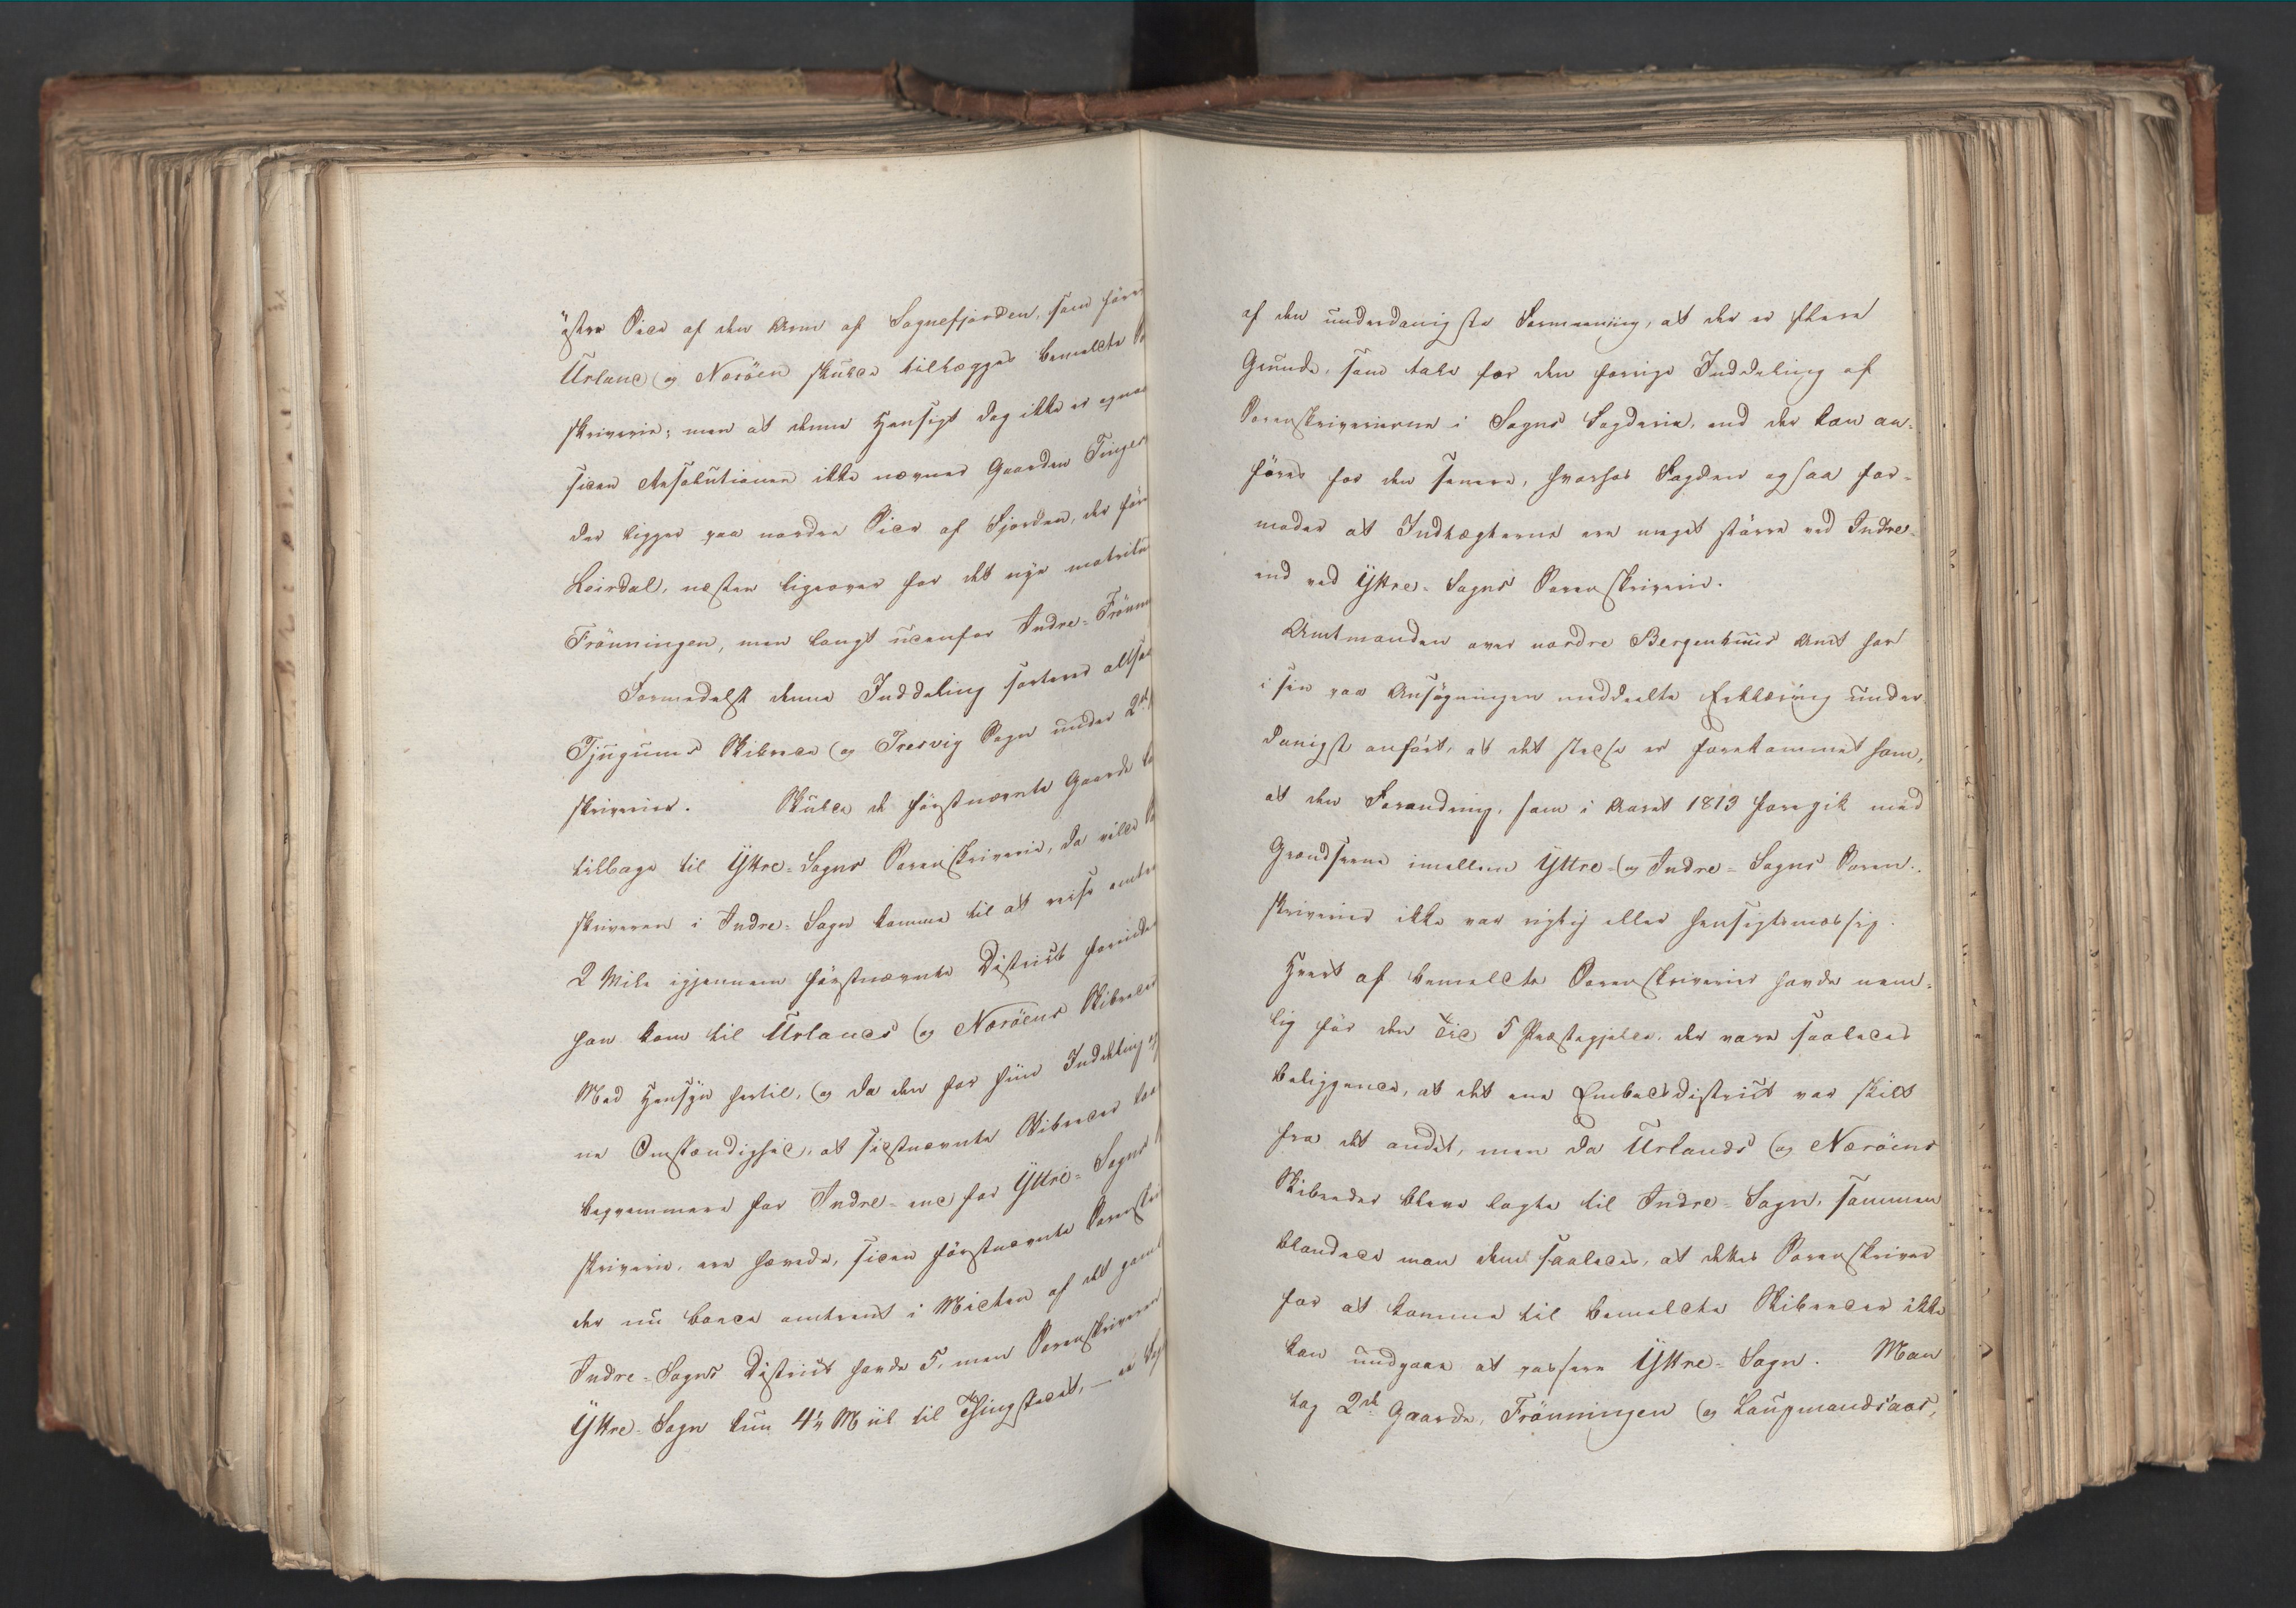 östre Side af den Arm af Sognefjorden, som fører
Urland og Nerøen skulde tillægges bemeldte So
skriverie; men at denne Hensigt dog ikke er opnaa
siden Resolutionen ikke nævner Gaarden Finges
der ligger paa nordre Side af Fjorden, der fører
Leirdal, næsten ligeover for det nye matriku
Frönningen, men langt udenfor Indre-Frönni
Formedelst denne Inddeling sorterer altsaa
Tjugums Skibrede og Fresvig Sogn under 2de
skriverier. Skulde de førstnævnte Gaarde
tilbage til Yttre-Sogns Sorenskriverie, da vilde So
skriveren i Indre-Sogn komme til at reise omtre
2 Mile igjennem førstnævnte District forinde
han kom til Urlands og Nærøens Skibreder
Med Hensyn hertil, og da den for hiin Inddeling
ne Omstændighed, at sidstnævnte Skibreder
beqvemmere for Indre- end for Yttre-Sogns
skriverie, ere hævede, siden førstnævnte Sorenskri
der nu boede omtrent i Midten af det gamle
Indre-Sogns District havde 5, men Sorenskriveren
Yttre-Sogn kun 4½ Miil til Thingstedet, —
af den underdanigste Formening, at der er flere
Grunde, som tale for den forrige Inddeling af
Sorenskriverierne i Sogns Fogderie, end der kan an-
føres for den senere, hvorhos Fogden ogsaa for-
moder at Indtægterne ere meget større ved Indre-
end ved Yttre-Sogns Sorenskriverie.
Amtmanden over nordre Bergenhuus Amt har
i sin paa Ansøgningen meddeelte Erklæring under-
danigst anført, at det stedse er forekommet ham,
at den Forandring, som i Aaret 1813 foregik med
Grændserne imellem Yttre- og Indre-Sogns Soren-
skriverier ikke var rigtig eller hensigtsmæssig.
Hvert af bemeldte Sorenskriverier havde nem-
lig før den Tid 5 Præstegjelde, der vare saaledes
beliggende, at det ene Embedsdistrict var skilt
fra det andet, men da Urlands og Nærøens
Skibreder bleve lagte til Indre-Sogn, sammen
blandede man dem saaledes, at dettes Sorenskriver
for at komme til bemeldte Skibreder ikke
kan undgaae at passere Yttre-Sogn. Man
tog 2de Gaarde, Frönningen og Laupmandsaas,